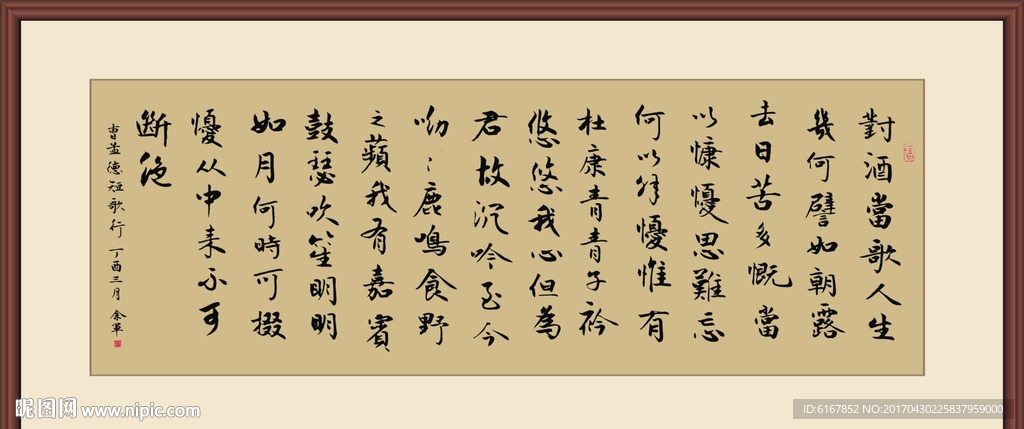 對酒當歌人生
幾何譬如朝露
去日苦多慨當
以慷懮思難忘
何以解懮惟有
杜康青青子衿
悠悠我心但為
君故沉吟至今
呦〻鹿鳴食野
之蘋我有嘉賓
鼓瑟吹笙明明
如月何時可掇
懮从中来不可
斷絶
曹孟德短歌行 丁酉三月 余軍
昵图网 www.nipic.com
ID:6167852 NO:20170430225837959000